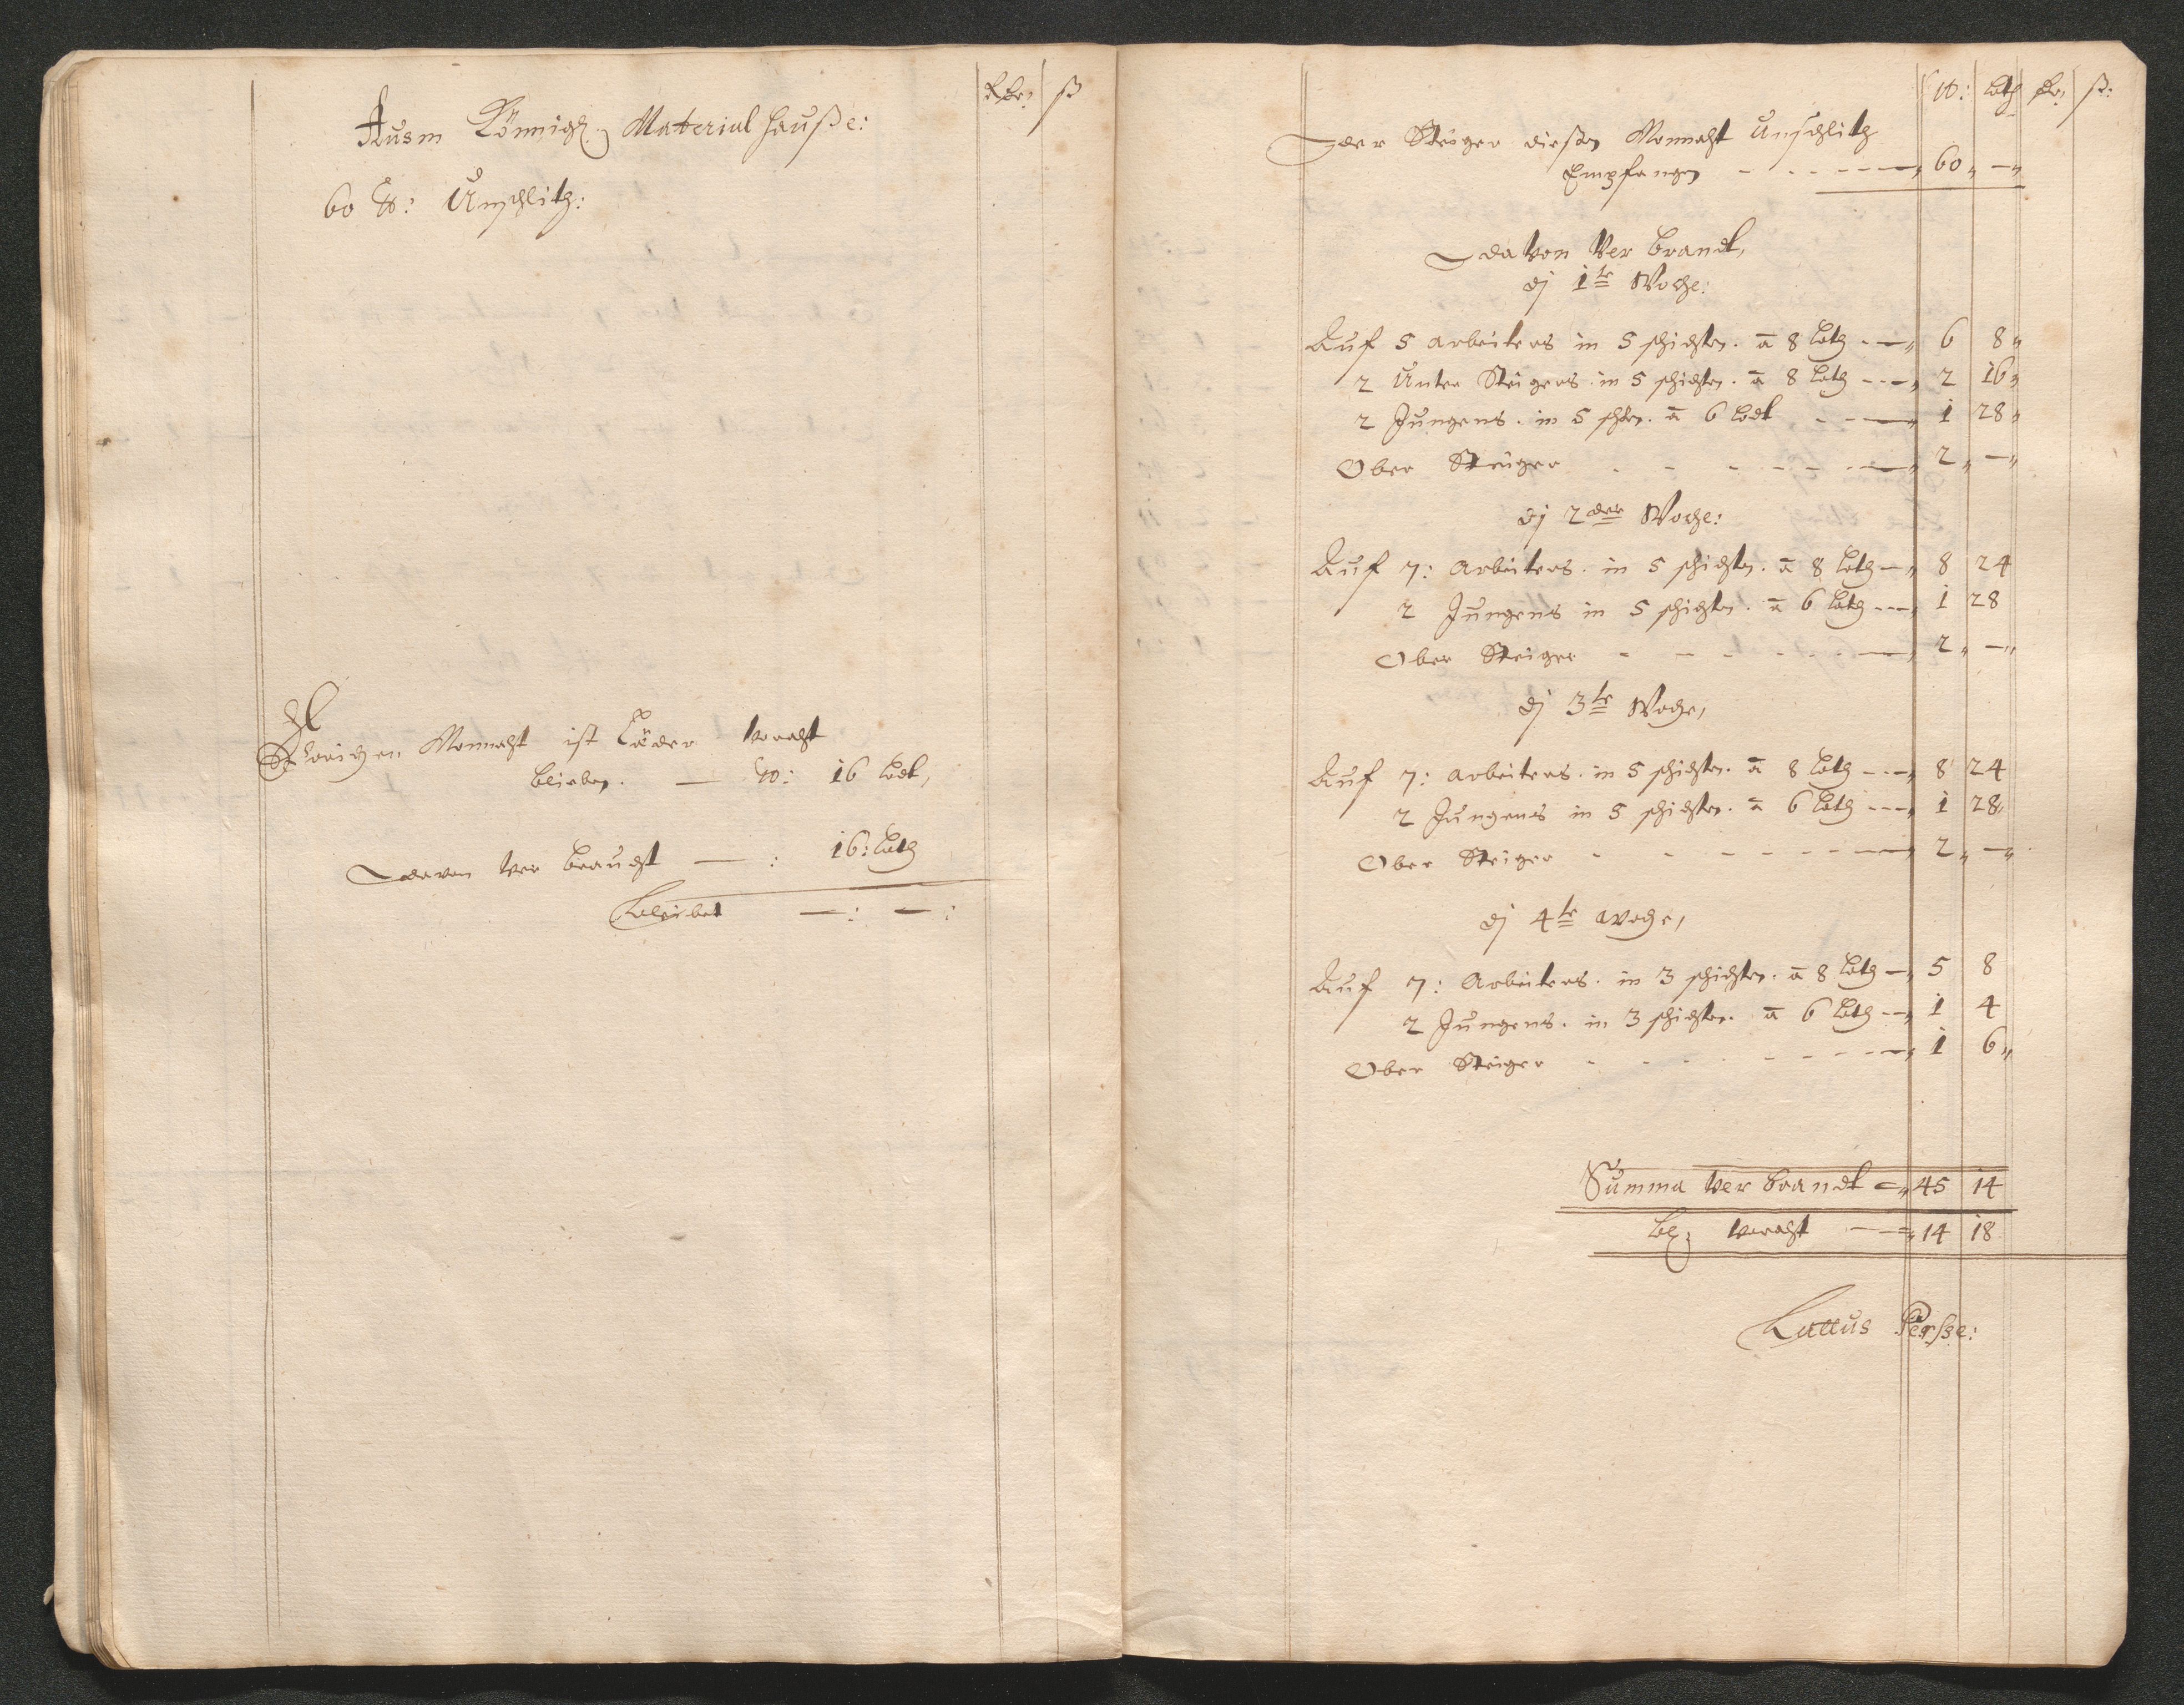 Rthr: ß
Ausm Könnigl: Material Hauße:
60 ℔: Unschlitz:
Vorigen Monnaht ist Läder voraht
blieben. — ℔: 16 Lodt,
davon ver braucht — : 16: Loth
bleibet —: —:
℔: Loth Rt: ß:
der Steiger dießen Monnaht Unschlitz
Empfangen - - - - — 60 „ —„
davon Ver brandt,
dj 1te Woche:
Auf 5 arbeiters in 5 schichten. a 8 Loth - — 6 8„
2 Unter Steigers in 5 schichten. a 8 Loth - - — 2 16„
2 Jungens. in 5 schten. a 6 Lodt - - — 1 28„
Ober Steiger - - - - - — 2 „ —„
dj 2der Woche:
Auf 7: arbeiters. in 5 schichten. a 8 Loth — 8 24
2 Jungens in 5 schichten. a 6 Loth - - — 1 28
Ober Steiger - - - - - — 2 „ —„
dj 3te Woche,
Auf 7: arbeiters. in 5 schichten. a 8 Loth - — 8 24
2 Jungens in 5 schichten. a 6 Loth - - — 1 28„
Ober Steiger - - - - - — 2 „ —„
dj 4te Woche,
Auf 7: Arbeiters. in 3 schichten. a 8 Loth — 5 8
2 Jungens. in 3 schichten. a 6 Loth - — 1 4
Ober Steiger - - - - - — 1 6„
Summa ver brandt — 45 14
bl: voraht — 14 18
Lattus Persse: